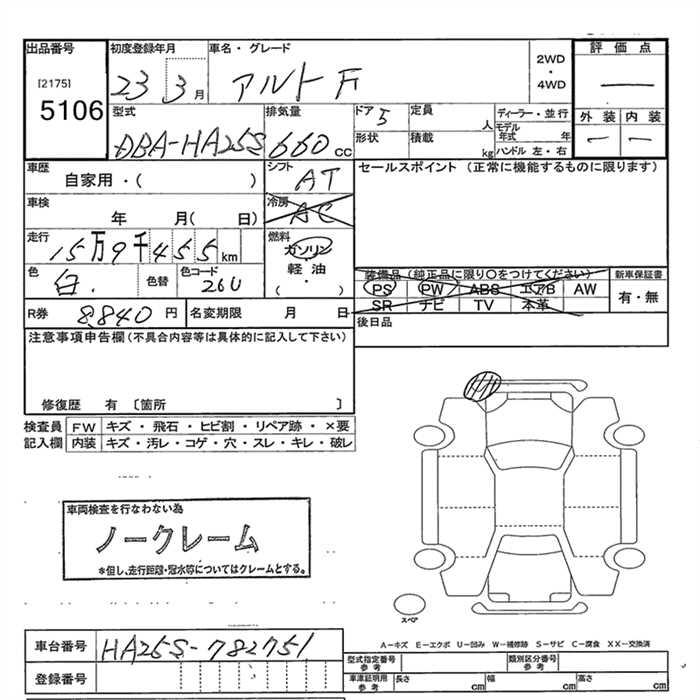 出品番号
[2175]
5106
初度登録年月
23 3月
車名・グレード
アルト F
2WD・4WD
評価点
—
外装 内装
— —
型式
DBA-HA25S
排気量
660 cc
ドア 5
形状
定員 人
積載 kg
ディーラー・並行
モデル年式 年
ハンドル 左・右
車歴
自家用・( )
シフト
AT
セールスポイント (正常に機能するものに限ります)
車検
年 月( 日)
冷房
AC
走行
15万9千455km
燃料
ガソリン
軽油
( ・ )
色
白.
色替
色コード
26U
装備品 (純正品に限り〇をつけてください)
PS PW ABS エアB AW
SR ナビ TV 本革
新車保証書
有・無
R券 8,840円
名変期限 月 日
後日品
注意事項申告欄(不具合内容等は具体的に記入して下さい)
修復歴 有 〔箇所 〕
検査員記入欄
FW キズ・飛石・ヒビ割・リペア跡・×要
内装 キズ・汚レ・コゲ・穴・スレ・キレ・破レ
車両検査を行なわない為
ノークレーム
*但し、走行距離・冠水等についてはクレームとする。
スペア
A-キズ E-エクボ U-凹み W-補修跡 S-サビ C-腐食 XX-交換済
車台番号 HA25S-782751
登録番号
型式指定番号 参考
類別区分番号 参考
車庫証明用 参考
長さ cm
幅 cm
高さ cm